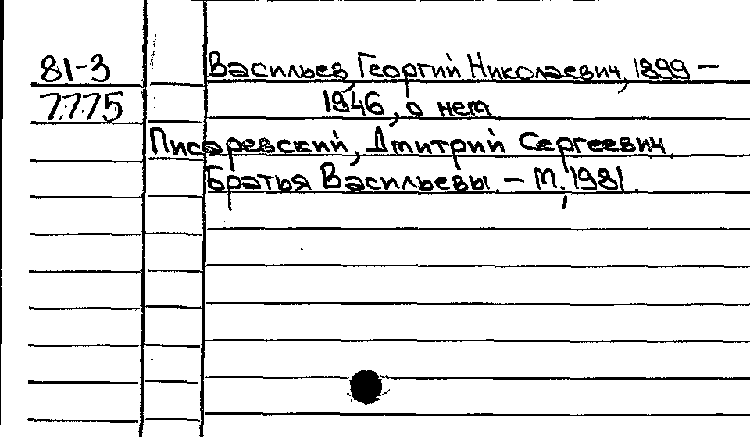 81-3 Васильев, Георгий Николаевич, 1899 –
7775 1946, о нем
Писаревский, Дмитрий Сергеевич.
Братья Васильевы. – М., 1981.